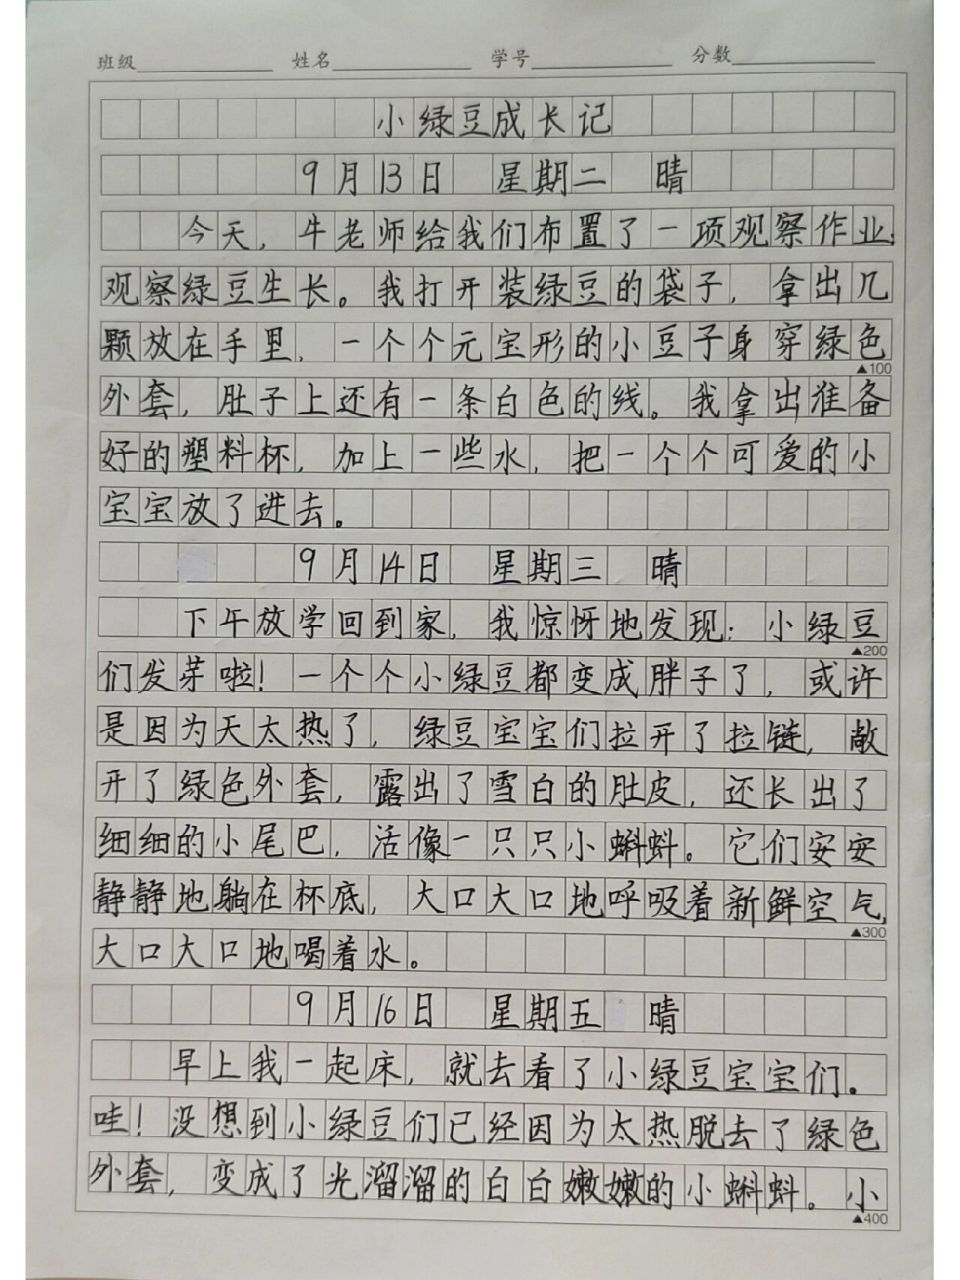 班级 姓名 学号 分数
小绿豆成长记
9月13日 星期二 晴
今天，牛老师给我们布置了一项观察作业：
观察绿豆生长。我打开装绿豆的袋子，拿出几
颗放在手里，一个个元宝形的小豆子身穿绿色
▲100
外套，肚子上还有一条白色的线。我拿出准备
好的塑料杯，加上一些水，把一个个可爱的小
宝宝放了进去。
9月14日 星期三 晴
下午放学回到家，我惊讶地发现：小绿豆
▲200
们发芽啦！一个个小绿豆都变成胖子了，或许
是因为天太热了，绿豆宝宝们拉开了拉链，敞
开了绿色外套，露出了雪白的肚皮，还长出了
细细的小尾巴，活像一只只小蝌蚪。它们安安
静静地躺在杯底，大口大口地呼吸着新鲜空气，
▲300
大口大口地喝着水。
9月16日 星期五 晴
早上我一起床，就去看了小绿豆宝宝们。
哇！没想到小绿豆们已经因为太热脱去了绿色
外套，变成了光溜溜的白白嫩嫩的小蝌蚪。小
▲400